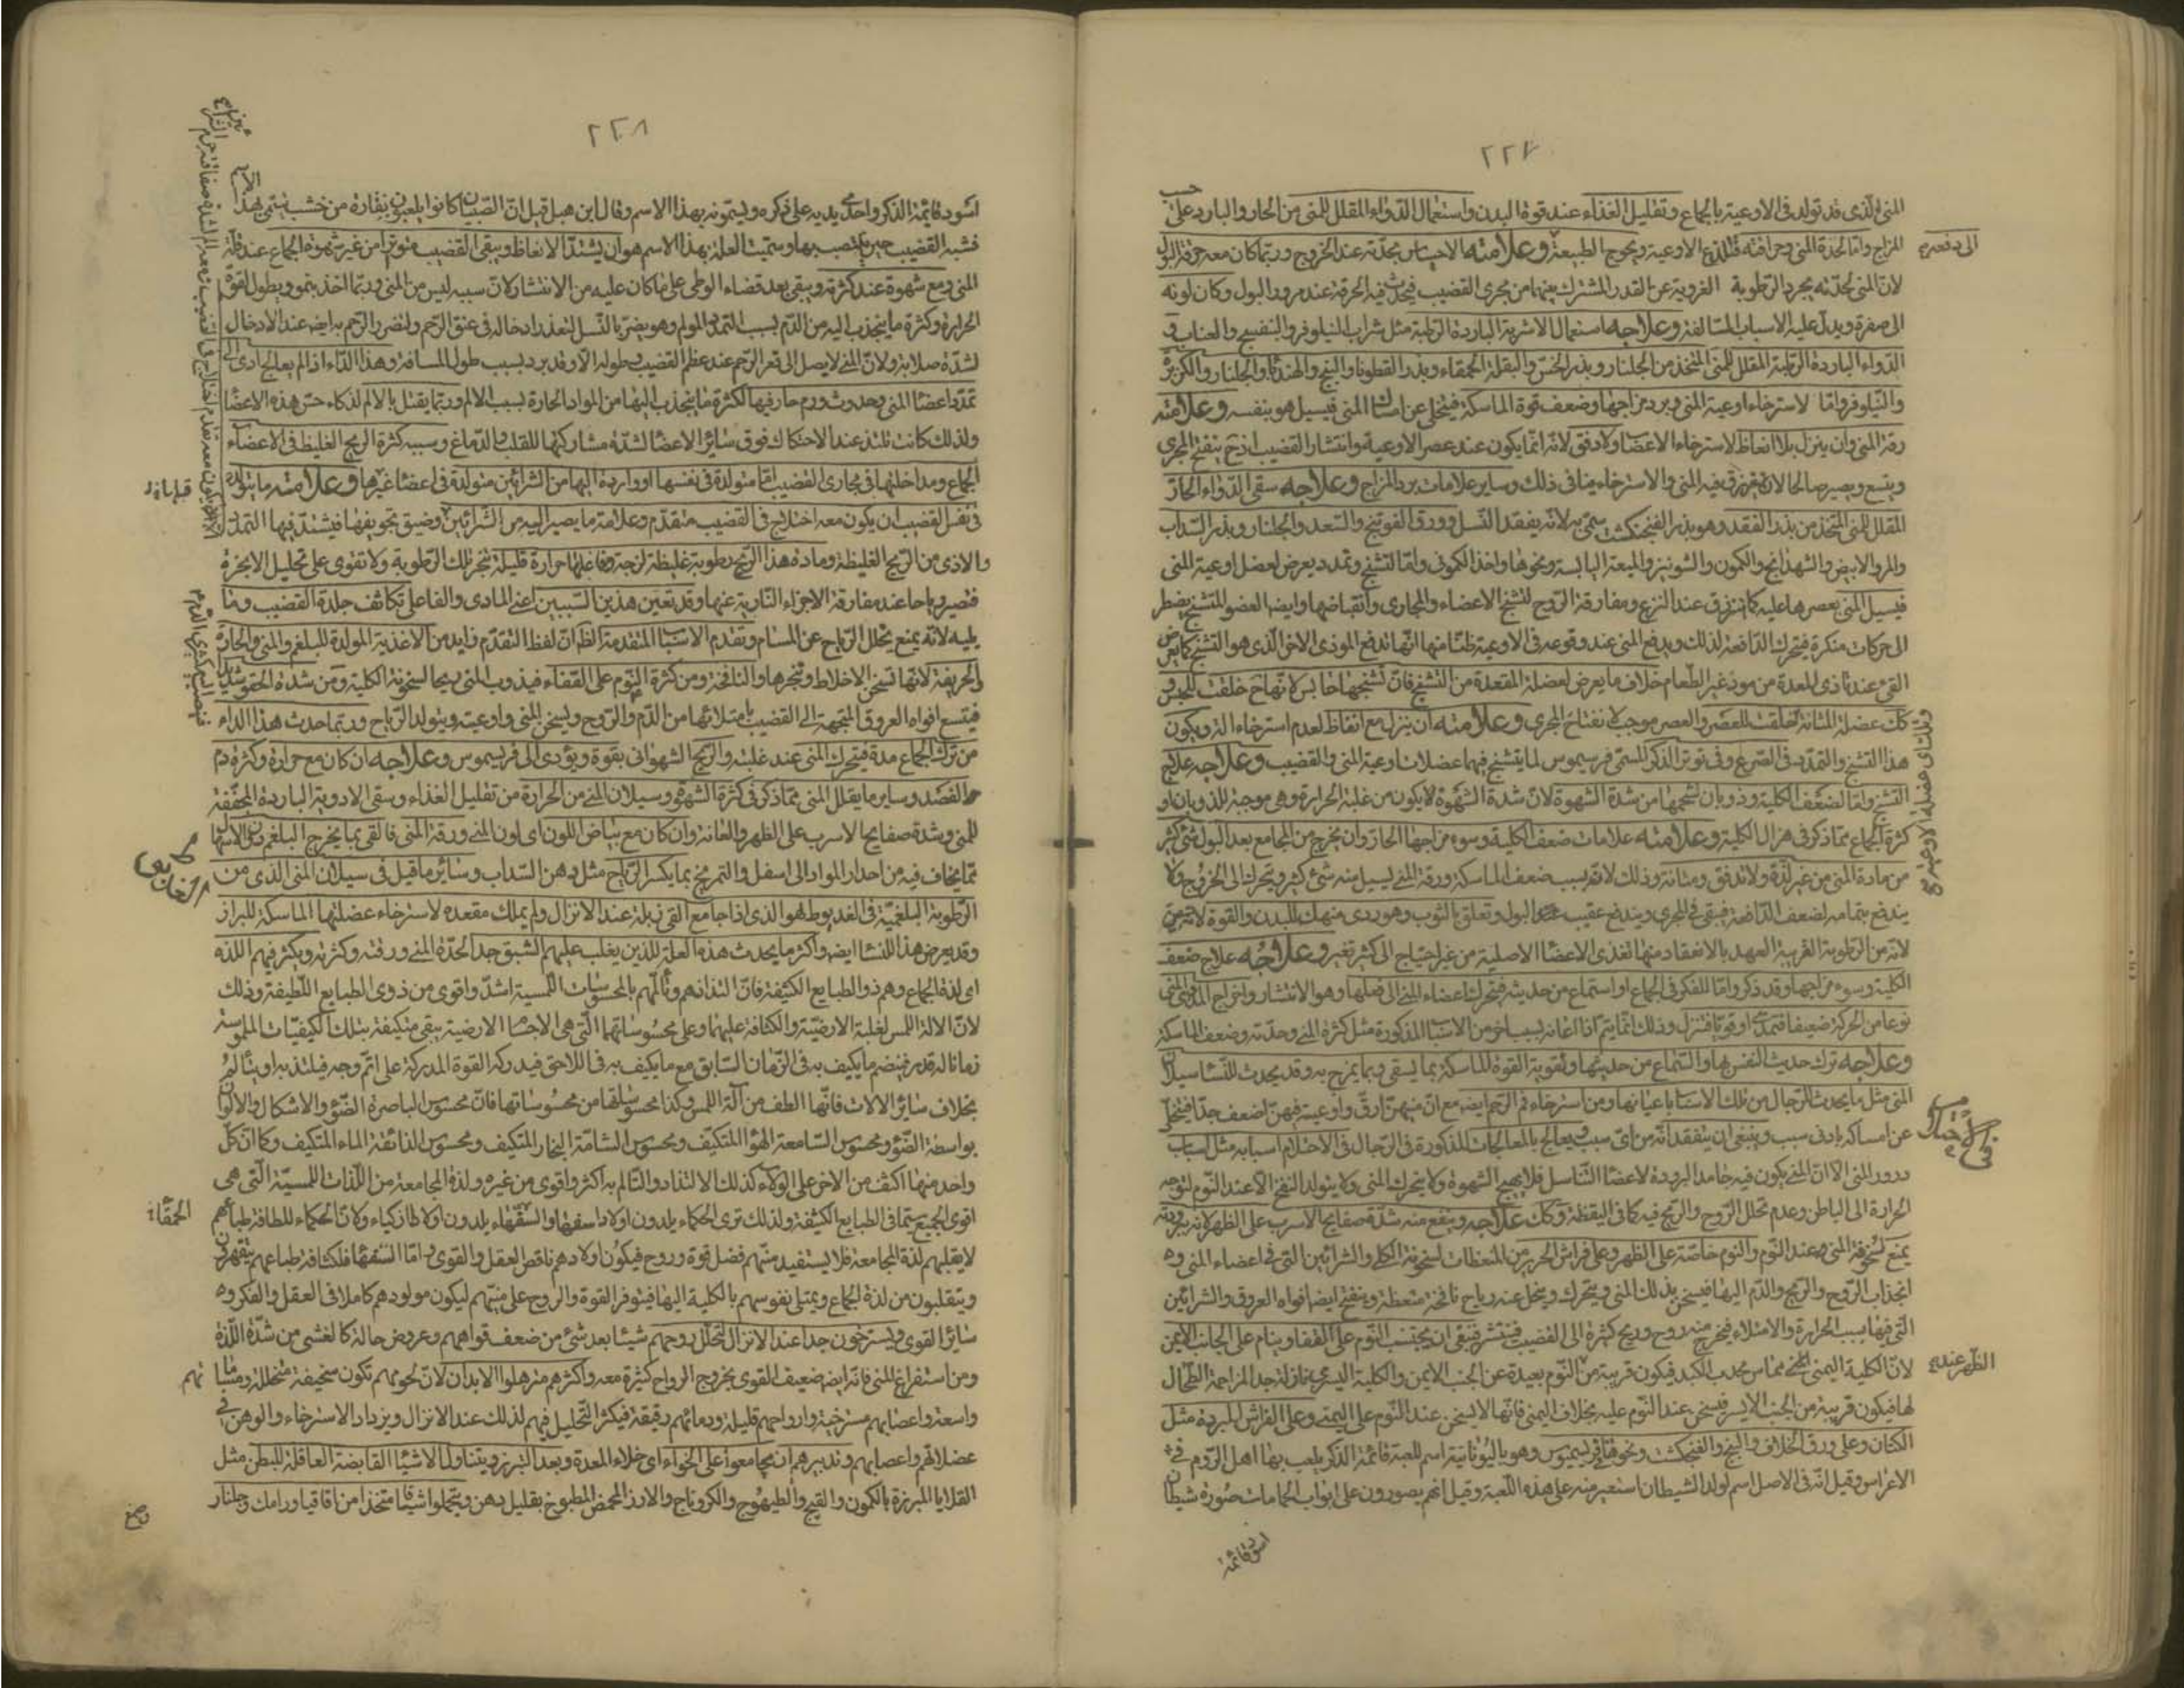 ٢٢٧
المنى الذى قد تولد فى الاوعية بالجماع وتقليل الغذاء عند قوة البدن واستعمال الدواء المقلل للمنى من الحار والبارد على حسب
المزاج واما لحدة المنى وحرافته فتلذع الاوعية ويحوج الطبيعة الى دفعه وعلامته الاحساس بحدته عند الخروج وربما كان معه حرقة البول
لان المنى لحدته يجرد الرطوبة الغروية عن القدر المشترك بينهما من مجرى القضيب فيحدث فيه الحرقة عند مرور البول وكان لونه
الى صفرة ويدل عليه الاسباب السالفة وعلاجه استعمال الاشربة الباردة الرطبة مثل شراب النيلوفر والبنفسج والعناب و
الدواء الباردة الرطبة المقلل للمنى المتخذ من الجلنار وبذر الخس والبقلة الحمقاء وبذر القطونا والبنج والهندبا والجلنار والكزبرة
والنيلوفر واما لاسترخاء اوعية المنى وبرد مزاجها وضعف قوة الماسكة فيتخلى عن امساك المنى فيسيل هو بنفسه وعلامته
رقة المنى وان ينزل بلا انعاظ لاسترخاء الاعضا ولا دفق لانه انما يكون عند عصر الاوعية وانتشار القضيب اذ ح ينفتح المجرى
ويتسع ويصير صالحا لان ينزرق فيه المنى والاسترخاء ينافى ذلك وساير علامات برد المزاج وعلاجه سقى الدواء الحار
المقلل للمنى المتخذ من بذر الفقد وهو بذر الفنجنكشت سمى به لانه يفقد النسل وورق الفوتنج والسعد والجلنار وبذر السداب
والمرو الابيض والشهدانج والكمون والشونيز والميعة اليابسة ونحوها واخذ الكمونى واما لتشنج وتمدد يعرض لعضل اوعية المنى
فيسيل المنى بعصرها عليه كما ينزرق عند النزع ومفارقة الروح لتشنج الاعضاء والمجارى وانقباضها وايضا العضو المتشنج يضطر
الى حركات منكرة فيتحرك الدافعة لذلك ويدفع المنى عند وقوعه فى الاوعية ظنا منها انها تدفع الموذى الاخر الذى هو التشنج كما يعرض
القئ عند تاذى المعدة من موذ غير الطعام خلاف ما يعرض لعضلة المقعدة من التشنج فان تشنجها حابس لانها خلقت للحبس و
كك عضلة المثانة خلقت للعصر والعصر موجب لانفتاح المجرى وعلامته ان ينزل مع انعاظ لعدم استرخاء الالة ويكون
هذا التشنج والتمدد فى الصرع وفى توتر الذكر المسمى فريسموس لما يتشنج فيهما عضلات اوعية المنى والقضيب وعلاجه علاج
التشنج واما لضعف الكلية وذوبان شحمها من شدة الشهوة لان شدة الشهوة لا يكون من غلبة الحرارة وهى موجبة للذوبان او
كثرة الجماع مما ذكر فى هزال الكلية وعلامته علامات ضعف الكلية وسوء مزاجها الحار وان يخرج من المجامع بعد البول شئ كثير
من مادة المنى من غير لذة ولا تدفق ومثانة وذلك لانه بسبب ضعف الماسكة ورقة المنى يسيل منه شئ كثير ويتحرك الى الخروج ولا
يندفع بتمامه لضعف الدافعة فيبقى فى المجرى ويندفع عقيب البول وتعلق بالثوب وهو ردى منهك للبدن والقوة
لانه من الرطوبة القريبة العهد بالانعقاد منها تغذى الاعضا الاصلية من غير احتياج الى كثير تغير وعلاجه علاج ضعف
الكلية وسوء مزاجها وقد ذكر واما للفكر فى الجماع او استماع من حديثه فيتحرك اعضاء المنى الى فعلها وهو الانتشار وانزاج المذى والمنى
نوعا من الحركة ضعيفا فيمذى او قويا فينزل وذلك انما يتم اذا اعانه بسبب اخر من الاسباب المذكورة مثل كثرة المنى وحدته وضعف الماسكة
وعلاجه ترك حديث النفس بها والسماع من حديثها وتقوية القوة الماسكة بما يسقى وبما يمزج به وقد يحدث للنسا سيلان
المنى مثل ما يحدث للرجال من تلك الاسباب باعيانها ومن استرخاء فم الرحم ايضا مع ان منيهن ارق واوعيته فيهن اضعف جدا فيتخلى
عن امساكه بادنى سبب وينبغى ان يتفقد انه من اى سبب فيعالج بالمعالجات المذكورة فى الرجال فى الاحتلام اسبابه مثل اسباب
درور المنى الا ان المنى يكون فيه جامد البرودة لاعضا التناسل فلا يهيج الشهوة ولا يتحرك المنى ولا يتولد النفخ الا عند النوم لتوجه
الحرارة الى الباطن وعدم تحلل الروح والريح فيه كما فى اليقظة وكك علاجه وينفع منه شدة صفايح الاسرب على الظهر لانه ببرودته
يمنع سخونة المنى عند النوم والنوم خاصة على الظهر وعلى فراش الحرير من المنعظات لسخونة الكلى والشرائين التى فى اعضاء المنى و
انجذاب الروح والريح والدم اليها فيسخن بذلك المنى ويتحرك ويتحلل عنه رياح نافخة منعظة وينفتح ايضا افواه العروق والشرائين
التى فيها بسبب الحرارة والامتلاء فيخرج منه روح وريح كثيرة الى القضيب فينتشر فينبغى ان يجتنب النوم على القفا وينام على الجانب الايمن
لان الكلية اليمنى تماس محدب الكبد فيكون قريبة من النوم بعيدة عن الجنب الايمن والكلية اليسرى نازلة جدا لمزاحمة الطحال
لها فيكون قريبة من الجنب الايسر فيسخن عند النوم عليه بخلاف اليمنى فانها لا يسخن عند النوم على اليمنى وعلى الفراش المبردة مثل
الكتان وعلى ورق الخلاف والبنج والفنجكشت ونحوها فريسيموس وهو باليونانية اسم للعبة قائمة الذكر يلعب بها اهل الروم فى
الاعراس وقيل انه فى الاصل اسم لولد الشيطان استعير منه على هذه اللعبة وقيل انهم يصورون على ابواب الحمامات صورة شيطان
اسود قائمة
الى دفعه
فى الاحتلام
الظهر عند
٢٢٨
اسود قائمة الذكر واحدى يديه على ذكره ويسمونه بهذا الاسم وقال ابن هبل قيل ان الصبيان كانوا يلعبون بنقارة من خشب يسمى بهذا الاسم
فشبه القضيب حين ينتصب بها وسميت العلة بهذا الاسم هو ان يشتد الانعاظ ويبقى القضيب متوترا من غير شهوة الجماع عند قلة
المنى ومع شهوة عند كثرته ويبقى بعد قضاء الوطى على ما كان عليه من الانتشار لان سببه ليس من المنى وربما اخذ ينمو ويطول لقوة
الحرارة وكثرة ما ينجذب اليه من الدم بسبب التمدد المولم وهو يضر بالنسل لتعذر ادخاله فى عنق الرحم ولتضرر الرحم به ايضا عند الادخال
لشدة صلابته ولان المنى لا يصل الى قعر الرحم عند عظم القضيب وطوله الا وقد برد بسبب طول المسافة وهذا الداء اذا لم يعالج ادى الى
تمدد اعضا المنى وحدوث ورم حار فيها لكثرة ما ينجذب اليها من المواد الحارة بسبب الالم وربما يقتل بالالم لذكاء حس هذه الاعضا
ولذلك كانت تلتذ عند الاحتكاك فوق سائر الاعضا لشدة مشاركتها للقلب والدماغ وسببه كثرة الريح الغليظ فى الاعضاء
الجماع ومداخلتها فى مجارى القضيب اما متولدة فى نفسها او واردة اليها من الشرائين متولدة فى اعضا غيرها وعلامته ما يتولد
فى نفس القضيب ان يكون معه اختلاج فى القضيب متقدم وعلامة ما يصير اليه من الشرائين وضيق تجويفها فيشتد فيها التمدد
والاذى من الريح الغليظة ومادة هذا الريح رطوبة غليظة لزجة وفاعلها حرارة قليلة تبخر تلك الرطوبة ولا تقوى على تحليل الابخرة
فتصير رياحا عند مفارقة الاجزاء النارية عنها وقد تعين هذين السببين اعنى المادى والفاعلى تكاثف جلدة القضيب وما
يليه لانه يمنع تحلل الرياح عن المسام وتقدم الاسباب المتقدمة الظ ان لفظ التقدم زايد من الاغذية المولدة للبلغم والمنى والحارة
والحريفة لانها تسخن الاخلاط وتبخرها والنافخة ومن كثرة النوم على القفاء فيذوب المنى ريحا لسخونة الكلية ومن شدة الحقو شديدا
فيتسع افواه العروق المتجهة الى القضيب بامتلائها من الدم والروح ويسخن المنى واوعيته ويتولد الرياح وربما حدث هذا الداء
من ترك الجماع مدة فيتحرك المنى عند غلبته والريح الشهوانى بقوة ويؤدى الى فريسموس وعلاجه ان كان مع حرارة وكثرة دم
الفصد وساير ما يقلل المنى مما ذكر فى كثرة الشهوة وسيلان المنى من الحرارة من تقليل الغذاء وسقى الادوية الباردة المجففة
للمنى وشدة صفايح الاسرب على الظهر والعانة وان كان مع بياض اللون اى لون المنى ورقة المنى فالقى بما يخرج البلغم دون الاسهال
مما يخاف فيه من احدار المواد الى اسفل والتمريخ بما يكسر الرياح مثل دهن السداب وسائر ما قيل فى سيلان المنى الذى من
الرطوبة البلغمية فى الغديوط هو الذى اذا جامع القى زبله عند الانزال ولم يملك مقعده لاسترخاء عضلتها الماسكة للبراز
وقد يعرض هذا للنسا ايضا واكثر ما يحدث هذه العلة للذين يغلب عليهم الشبق جدا لحدة المنى ورقته وكثرته ويكثر فيهم اللذة
اى لذة الجماع وهم ذو الطبايع الكثيفة فان التذاذهم وتألمهم بالمحسوسات اللمسية اشد واقوى من ذوى الطبايع اللطيفة وذلك
لان الالة اللمس لغلبة الارضية والكثافة عليها وعلى محسوساتها التى هى الاجسام الارضية يبقى متكيفة بتلك الكيفيات الملموسة
زمانا له قدر فينضم ما يكيف به فى الزمان السابق مع ما يكيف به فى اللاحق فيدركه القوة المدركة على اتم وجه فيلتذ به او يتألم
بخلاف سائر الالات فانها الطف من آلة اللمس وكذا محسوساتها من محسوساتها فان محسوس الباصرة الضوء والاشكال والالوان
بواسطة الضوء ومحسوس السامعة الهواء المتكيف ومحسوس الشامة البخار المتكيف ومحسوس الذائقة الماء المتكيف وكما ان كل
واحد منها اكثف من الاخر على الولاء كذلك الالتذاذ والتالم به اكثر واقوى من غيره ولذة المجامعة من اللذات اللمسية التى هى
اقوى الجميع سيما فى الطبايع الكثيفة ولذلك ترى الحكماء يلدون اولادا سفها والسفهاء يلدون اولادا ازكياء ولان الحكماء للطافة طباعهم
لا يغلبهم لذة المجامعة فلا يستفيد منيهم فضل قوة وروح فيكون اولادهم ناقص العقل والقوى واما السفها فلكثافة طباعهم ينقهرون
ويتقلبون من لذة الجماع ويمتلى نفوسهم بالكلية اليها فيتوفر القوة والروح على منيهم ليكون مولودهم كاملا فى العقل والفكر و
سائر القوى ويسترخون جدا عند الانزال لتحلل روحهم شيئا بعد شئ من ضعف قواهم وعروض حالة كالغشى من شدة اللذة
ومن استفراغ المنى فانه ايضا ضعيف القوى بخروج الرواح كثيرة معه واكثرهم مترهلوا الابدان لان لحومهم تكون سخيفة متخلخلة ومسا
واسعة واعصابهم مسترخية وارواحهم قليلة ودمائهم رقيقة فيكثر التحليل فيهم لذلك عند الانزال ويزداد الاسترخاء والوهن فى
عضلاتهم واعصابهم وتدبيرهم ان يجامعوا على الخواء اى خلاء المعدة وبعد التبرز ويتناولوا الاشياء القابضة العاقلة للبطن مثل
القلايا المبرزة بالكمون والقبج والطيهوج والكروياج والارز المحمض المطبوخ بقليل دهن ويتحملوا اشيافا متخذا من اقاقيا ورامك وجلنار
الحمقاء